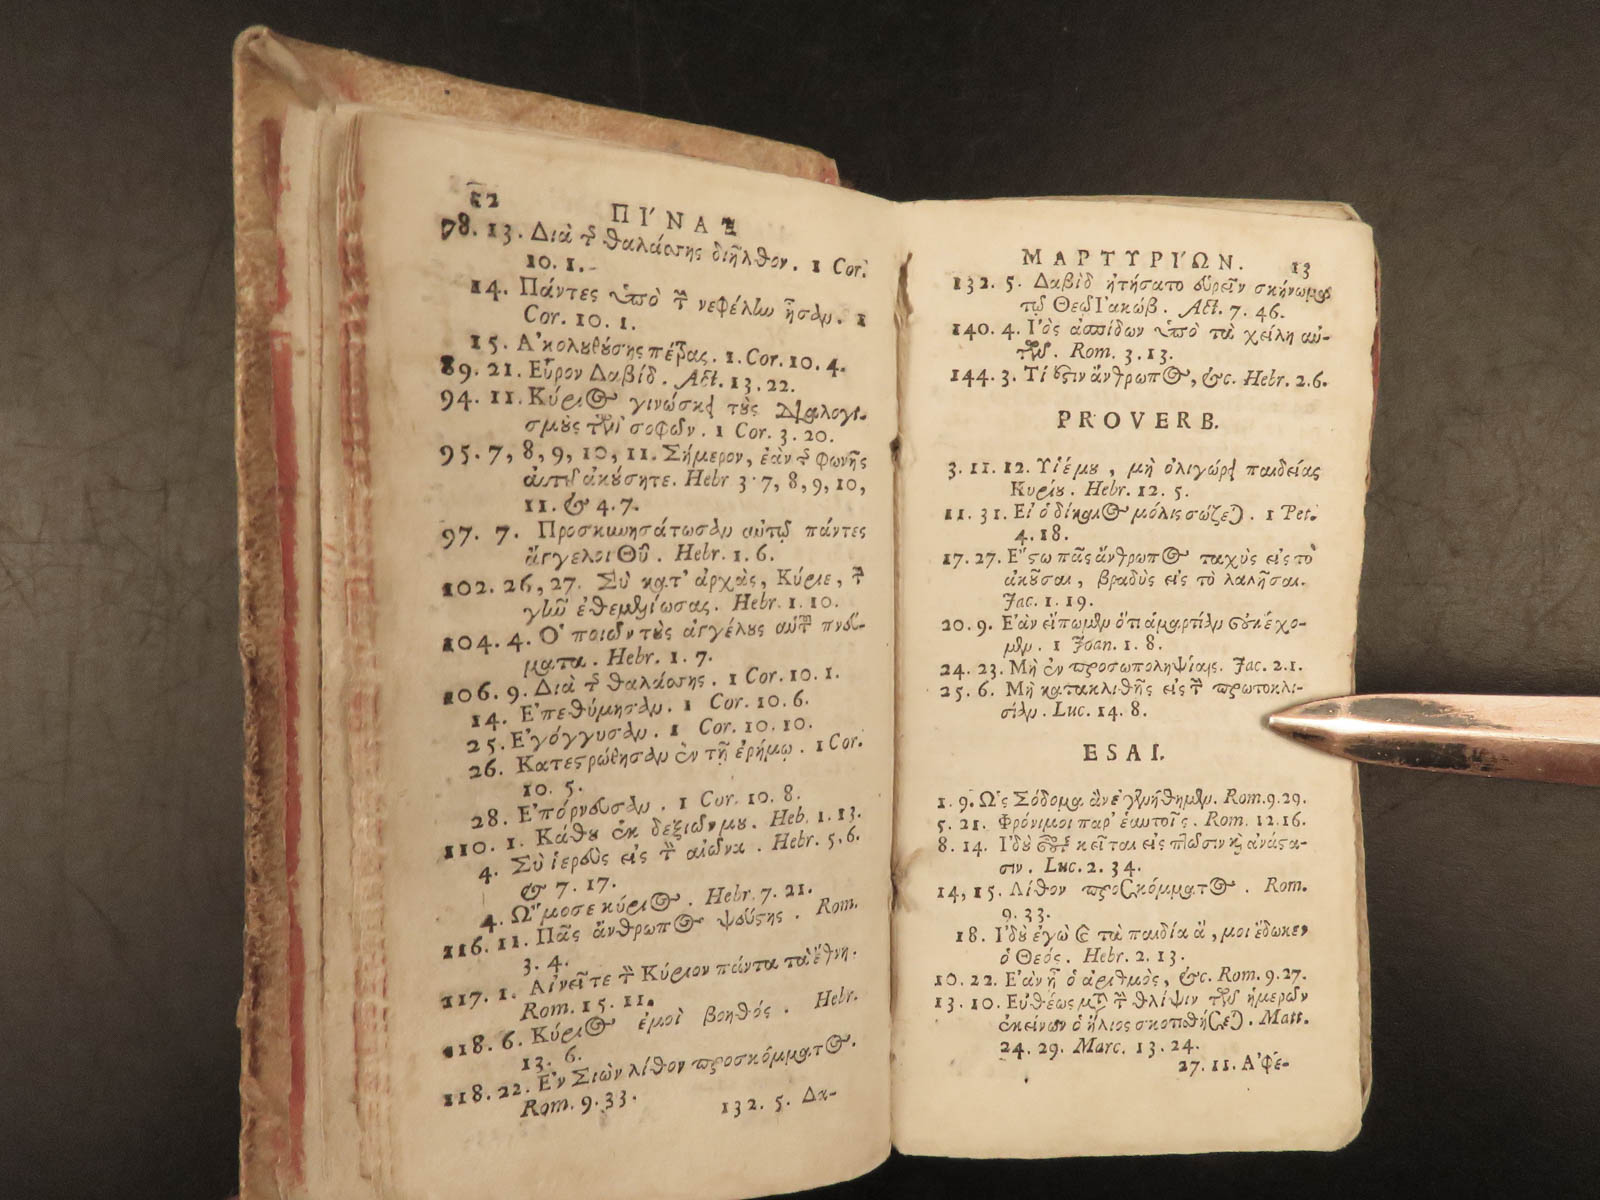 12 ΠΙ'ΝΑΞ
78. 13. Διὰ τῆς θαλάσσης διῆλθον. 1 Cor.
10. 1.
14. Πάντες ὑπὸ τὴν νεφέλην ἦσαν. 1
Cor. 10. 1.
15. Ἀκολουθούσης πέτρας. 1. Cor. 10. 4.
89. 21. Εὗρον Δαβίδ. Act. 13. 22.
94. 11. Κύριος γινώσκει τοὺς διαλογι-
σμοὺς τῶν σοφῶν. 1 Cor. 3. 20.
95. 7, 8, 9, 10, 11. Σήμερον, ἐὰν τῆς φωνῆς
αὐτοῦ ἀκούσητε. Hebr 3. 7, 8, 9, 10,
11. & 4. 7.
97. 7. Προσκυνησάτωσαν αὐτῷ πάντες
ἄγγελοι Θῦ. Hebr. 1. 6.
102. 26, 27. Σὺ κατ' ἀρχὰς, Κύριε, τὴν
γῆν ἐθεμελίωσας. Hebr. 1. 10.
104. 4. Ὁ ποιῶν τοὺς ἀγγέλους αὐτοῦ πνεύ-
ματα. Hebr. 1. 7.
106. 9. Διὰ τῆς θαλάσσης. 1 Cor. 10. 1.
14. Ἐπεθύμησαν. 1 Cor. 10. 6.
25. Ἐγόγγυσαν. 1 Cor. 10. 10.
26. Κατεστρώθησαν ἐν τῇ ἐρήμῳ. 1 Cor.
10. 5.
28. Ἐπόρνευσαν. 1 Cor. 10. 8.
110. 1. Κάθου ἐκ δεξιῶν μου. Heb. 1. 13.
4. Σὺ ἱερεὺς εἰς τὸν αἰῶνα. Hebr. 5. 6
& 7. 17.
4. Ὤμοσε κύριος. Hebr. 7. 21.
116. 11. Πᾶς ἄνθρωπος ψεύστης. Rom.
3. 4.
117. 1. Αἰνεῖτε τὸν Κύριον πάντα τὰ ἔθνη.
Rom. 15. 11.
118. 6. Κύριος ἐμοὶ βοηθός. Hebr.
13. 6.
118. 22. Ἐν Σιὼν λίθον προσκόμματος.
Rom. 9. 33.
132. 5. Δα-
ΜΑΡΤΥΡΙ'ΩΝ. 13
132. 5. Δαβὶδ ἠτήσατο εὑρεῖν σκήνωμα
τῷ Θεῷ Ἰακώβ. Act. 7. 46.
140. 4. Ἰὸς ἀσπίδων ὑπὸ τὰ χείλη αὐ-
τῶν. Rom. 3. 13.
144. 3. Τί ἐστιν ἄνθρωπος, &c. Hebr. 2. 6.
PROVERB.
3. 11. 12. Υἱέ μου, μὴ ὀλιγώρει παιδείας
Κυρίου. Hebr. 12. 5.
11. 31. Εἰ ὁ δίκαιος μόλις σώζεται. 1 Pet.
4. 18.
17. 27. Ἔστω πᾶς ἄνθρωπος ταχὺς εἰς τὸ
ἀκοῦσαι, βραδὺς εἰς τὸ λαλῆσαι.
Jac. 1. 19.
20. 9. Ἐὰν εἴπωμεν ὅτι ἁμαρτίαν οὐκ ἔχο-
μεν. 1 Joan. 1. 8.
24. 23. Μὴ ἐν προσωποληψίαις. Jac. 2. 1.
25. 6. Μὴ κατακλιθῇς εἰς τὴν πρωτοκλι-
σίαν. Luc. 14. 8.
ESAI.
1. 9. Ὡς Σόδομα ἂν ἐγενήθημεν. Rom. 9. 29.
5. 21. Φρόνιμοι παρ' ἑαυτοῖς. Rom. 12. 16.
8. 14. Ἰδοὺ οὗτος κεῖται εἰς πτῶσιν καὶ ἀνάστα-
σιν. Luc. 2. 34.
14, 15. Λίθον προσκόμματος. Rom.
9. 33.
18. Ἰδοὺ ἐγὼ καὶ τὰ παιδία ἅ, μοι ἔδωκεν
ὁ Θεός. Hebr. 2. 13.
10. 22. Ἐὰν ᾖ ὁ ἀριθμὸς, &c. Rom. 9. 27.
13. 10. Εὐθέως μετὰ τὴν θλίψιν τῶν ἡμερῶν
ἐκείνων ὁ ἥλιος σκοτισθήσεται. Matt.
24. 29. Marc. 13. 24.
27. 11. Ἀφέ-